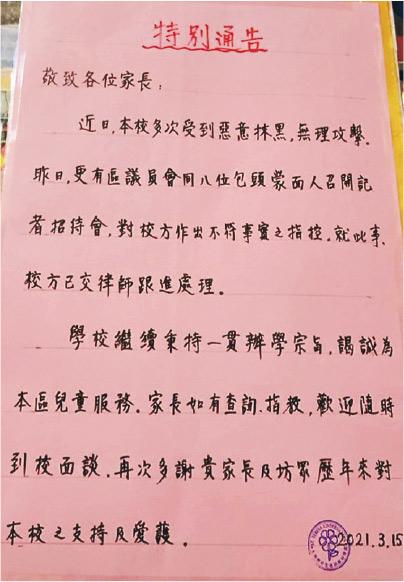 特別通告
敬致各位家長：
近日,本校多次受到惡意抹黑,無理攻擊.
昨日,更有區議員會同八位包頭蒙面人召開記
者招待會,對校方作出不符事實之指控.就此事、
校方已交律師跟進處理。
學校繼續秉持一貫辦學宗旨,謁誠為
本區兒童服務.家長如有查詢、指教,歡迎隨時
到校面談.再次多謝貴家長及坊眾歷年來對
本校之支持及愛護。
2021.3.15